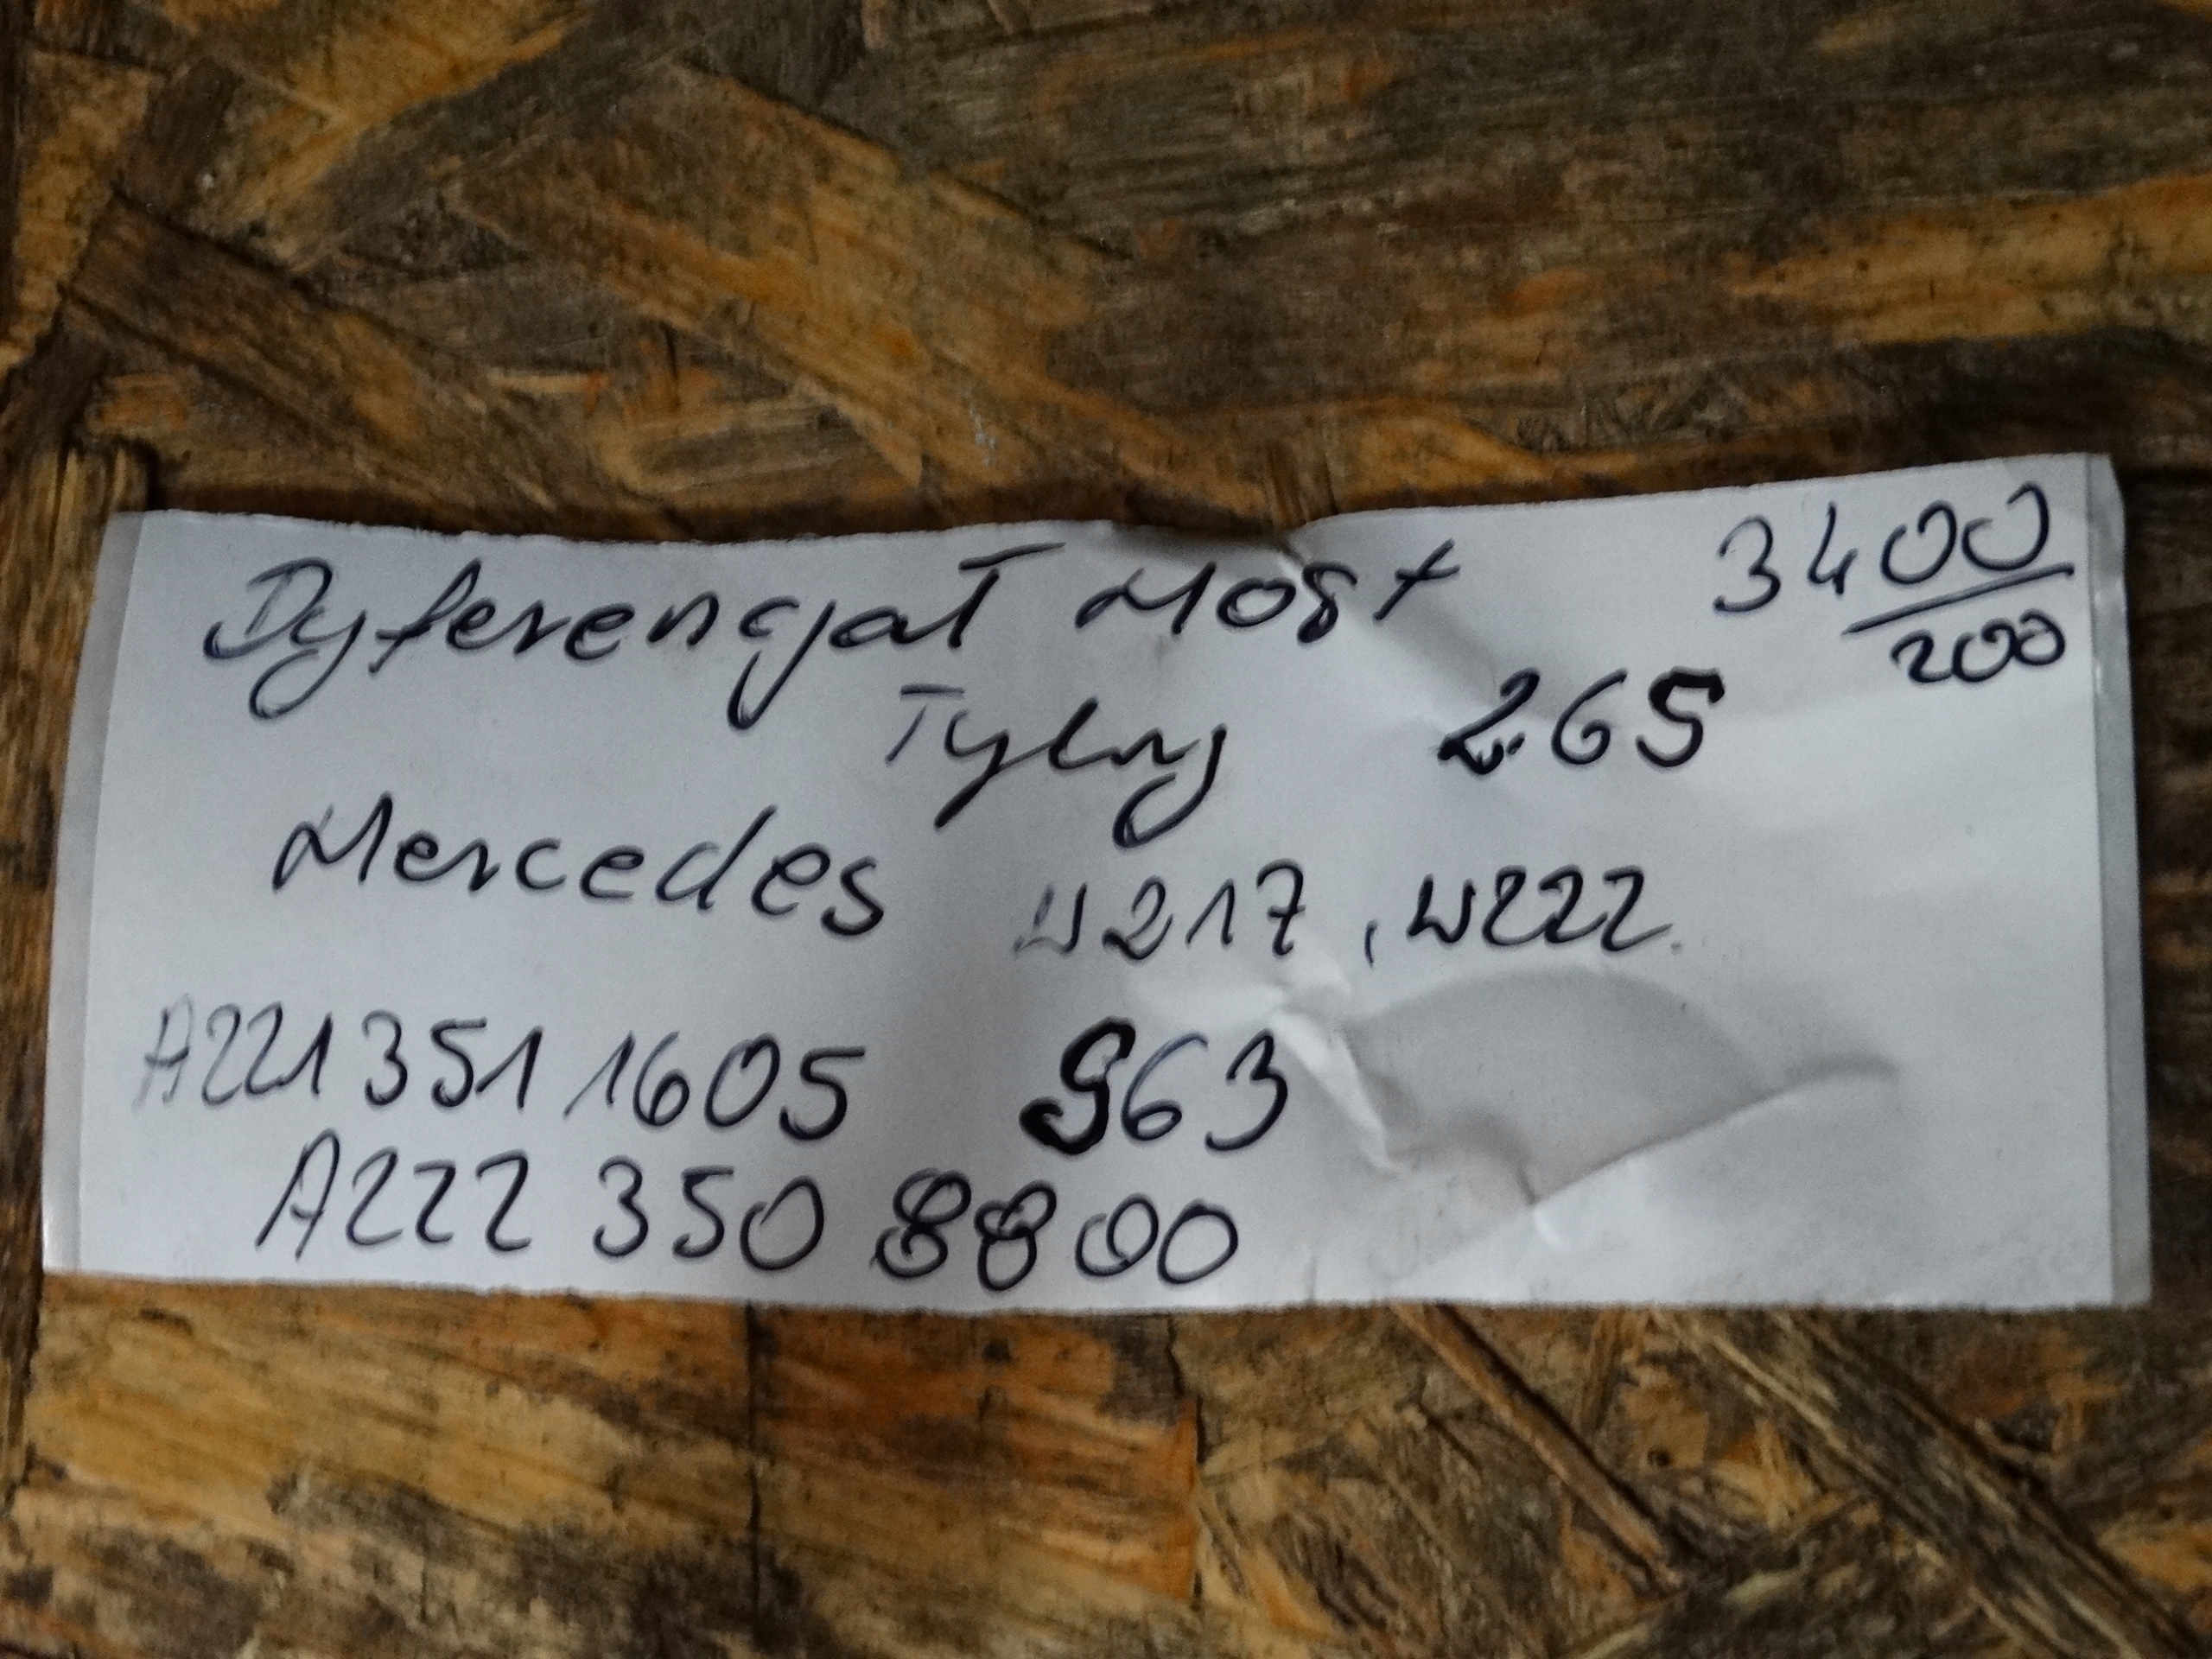 Dyferencjał Most 3400
200
Tylny 265
Mercedes W217, W222
A221 351 1605 963
A222 350 8800